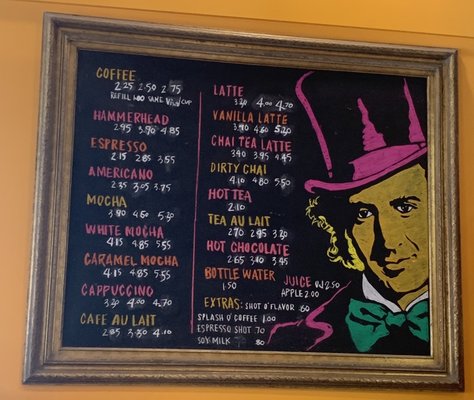 COFFEE
2.25 2.50 2.75
REFILL 1.00 SAME CUP
HAMMERHEAD
2.95 3.90 4.85
ESPRESSO
2.15 2.85 3.55
AMERICANO
2.35 3.05 3.75
MOCHA
3.90 4.60 5.30
WHITE MOCHA
4.15 4.85 5.55
CARAMEL MOCHA
4.15 4.85 5.55
CAPPUCCINO
3.30 4.00 4.70
CAFE AU LAIT
2.85 3.30 4.10
LATTE
3.30 4.00 4.70
VANILLA LATTE
3.90 4.60 5.30
CHAI TEA LATTE
3.40 3.95 4.45
DIRTY CHAI
4.10 4.80 5.50
HOT TEA
2.10
TEA AU LAIT
2.70 2.95 3.20
HOT CHOCOLATE
2.65 3.40 3.95
BOTTLE WATER
1.50
JUICE OJ 2.50
APPLE 2.00
EXTRAS: SHOT O'FLAVOR .60
SPLASH O' COFFEE 1.00
ESPRESSO SHOT .70
SOY MILK .80